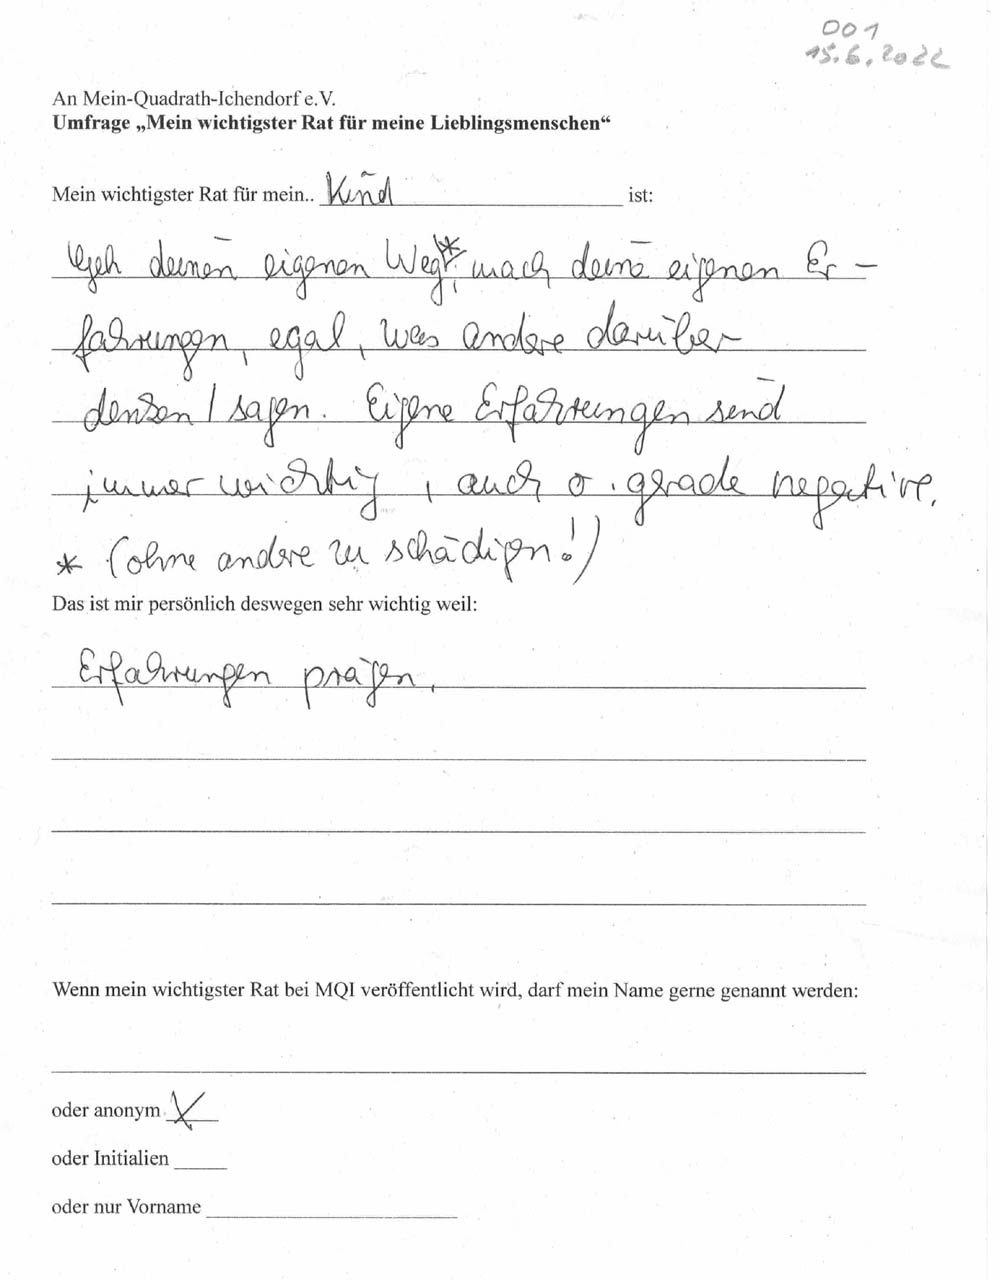 001
15.6.2022
An Mein-Quadrath-Ichendorf e.V.
Umfrage „Mein wichtigster Rat für meine Lieblingsmenschen“
Mein wichtigster Rat für mein.. Kind ist:
Geh deinen eigenen Weg*, mach deine eigenen Er-
fahrungen, egal, was andere darüber
denken / sagen. Eigene Erfahrungen sind
immer wichtig, auch o. gerade negative.
* (ohne andere zu schädigen!)
Das ist mir persönlich deswegen sehr wichtig weil:
Erfahrungen prägen.
Wenn mein wichtigster Rat bei MQI veröffentlicht wird, darf mein Name gerne genannt werden:
oder anonym X
oder Initialien
oder nur Vorname